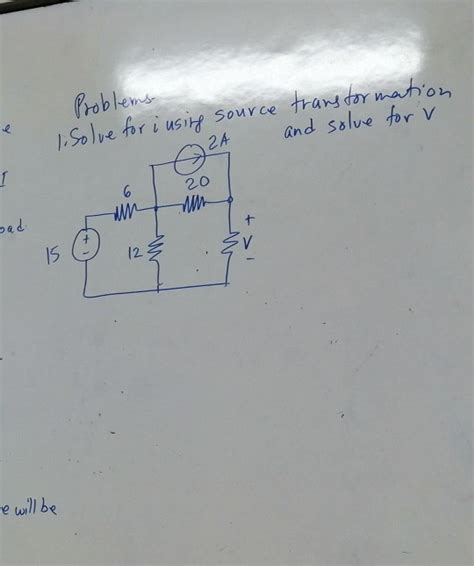 Problems
1. Solve for i using source transformation
and solve for V
e
I
oad
2A
6
20
+
15
+
-
12
V
-
e will be